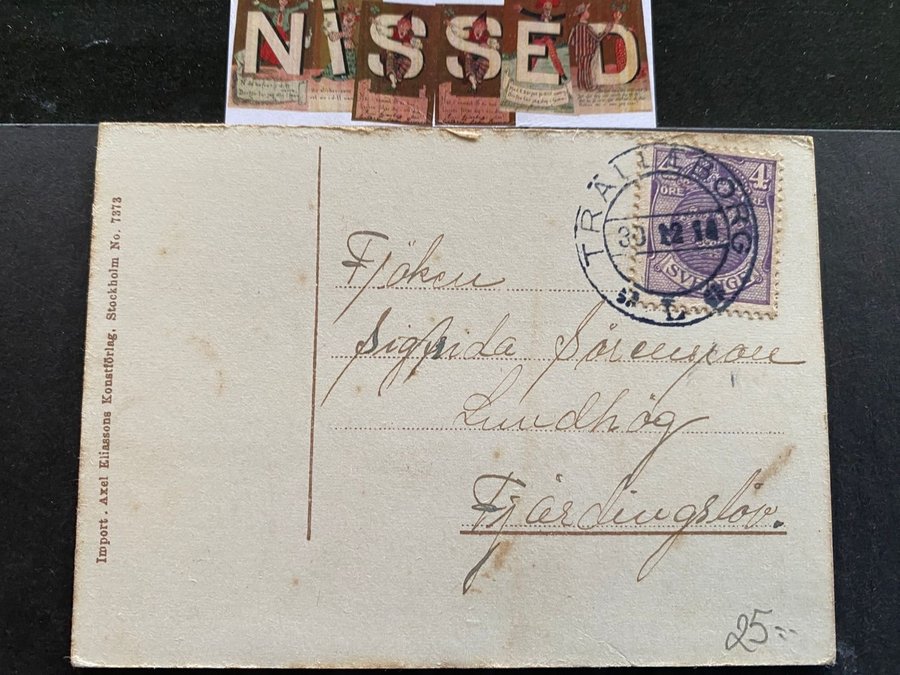 NiSSED
Import. Axel Eliassons Konstförlag, Stockholm No. 7373
TRÄLLEBORG
30 12 14
4 4
ÖRE
SVERIGE
Fröken
Sigfrida Sörensson
Lundhög
Fjärdingslöv.
25:-